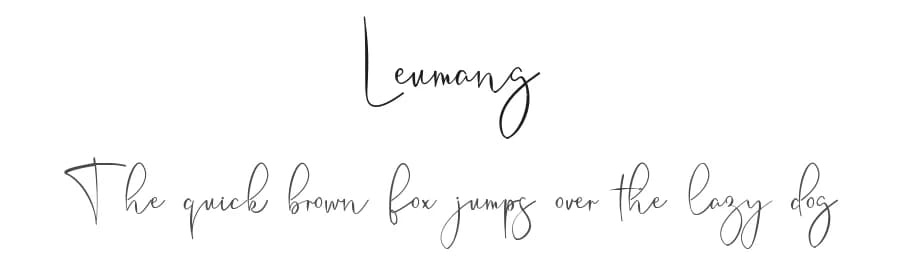 Leumang
The quick brown fox jumps over the lazy dog